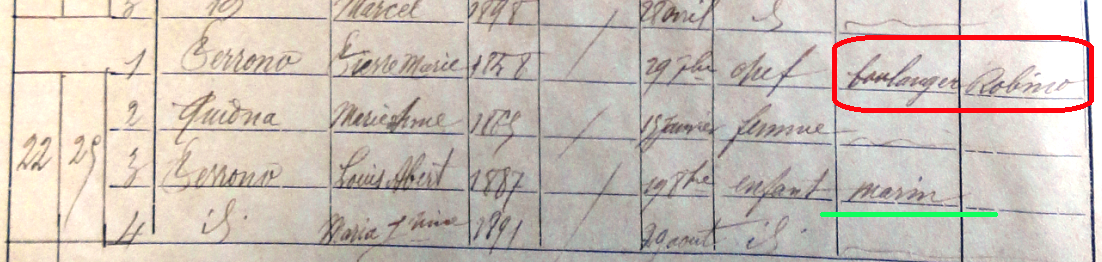 3 id Marcel 1898 / avril id
1 Perrono Pierre Marie 1858 / 29 7bre chef boulanger Robino
2 Guidna 1863 / 15 janvier femme
22 25 3 Perrono Louis Albert 1887 / 19 8bre enfant marin
4 id Maria 1891 29 aout id